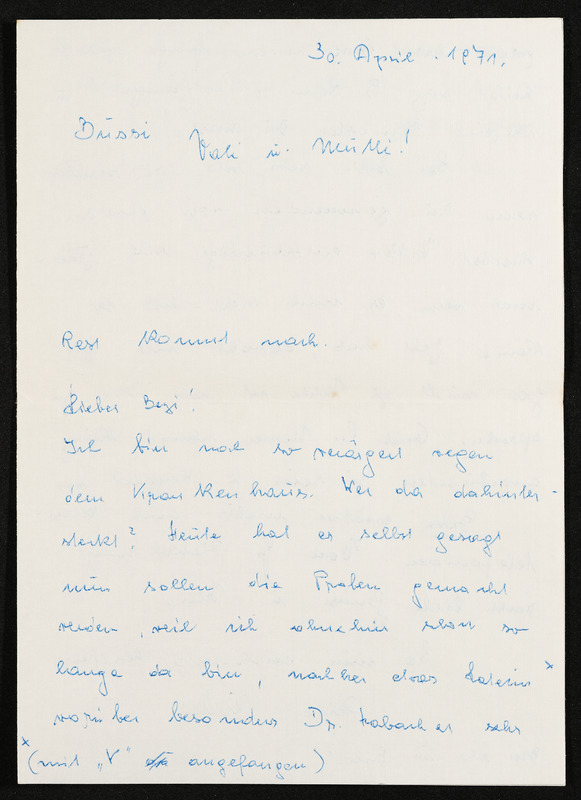 30. April. 1971.
Bussi
Vati u. Mutti!
Rest kommt nach.
Lieber Bezi!
Ich bin noch so verärgert wegen
dem Krankenhaus. Wer da dahinter-
steckt? Heute hat er selbst gesagt
nun sollen die Proben gemacht
werden, weil ich ohnehin schon so
lange da bin, nachher etwas Latein x
worüber besonders Dr. sehr
x
(mit „V" angefangen)